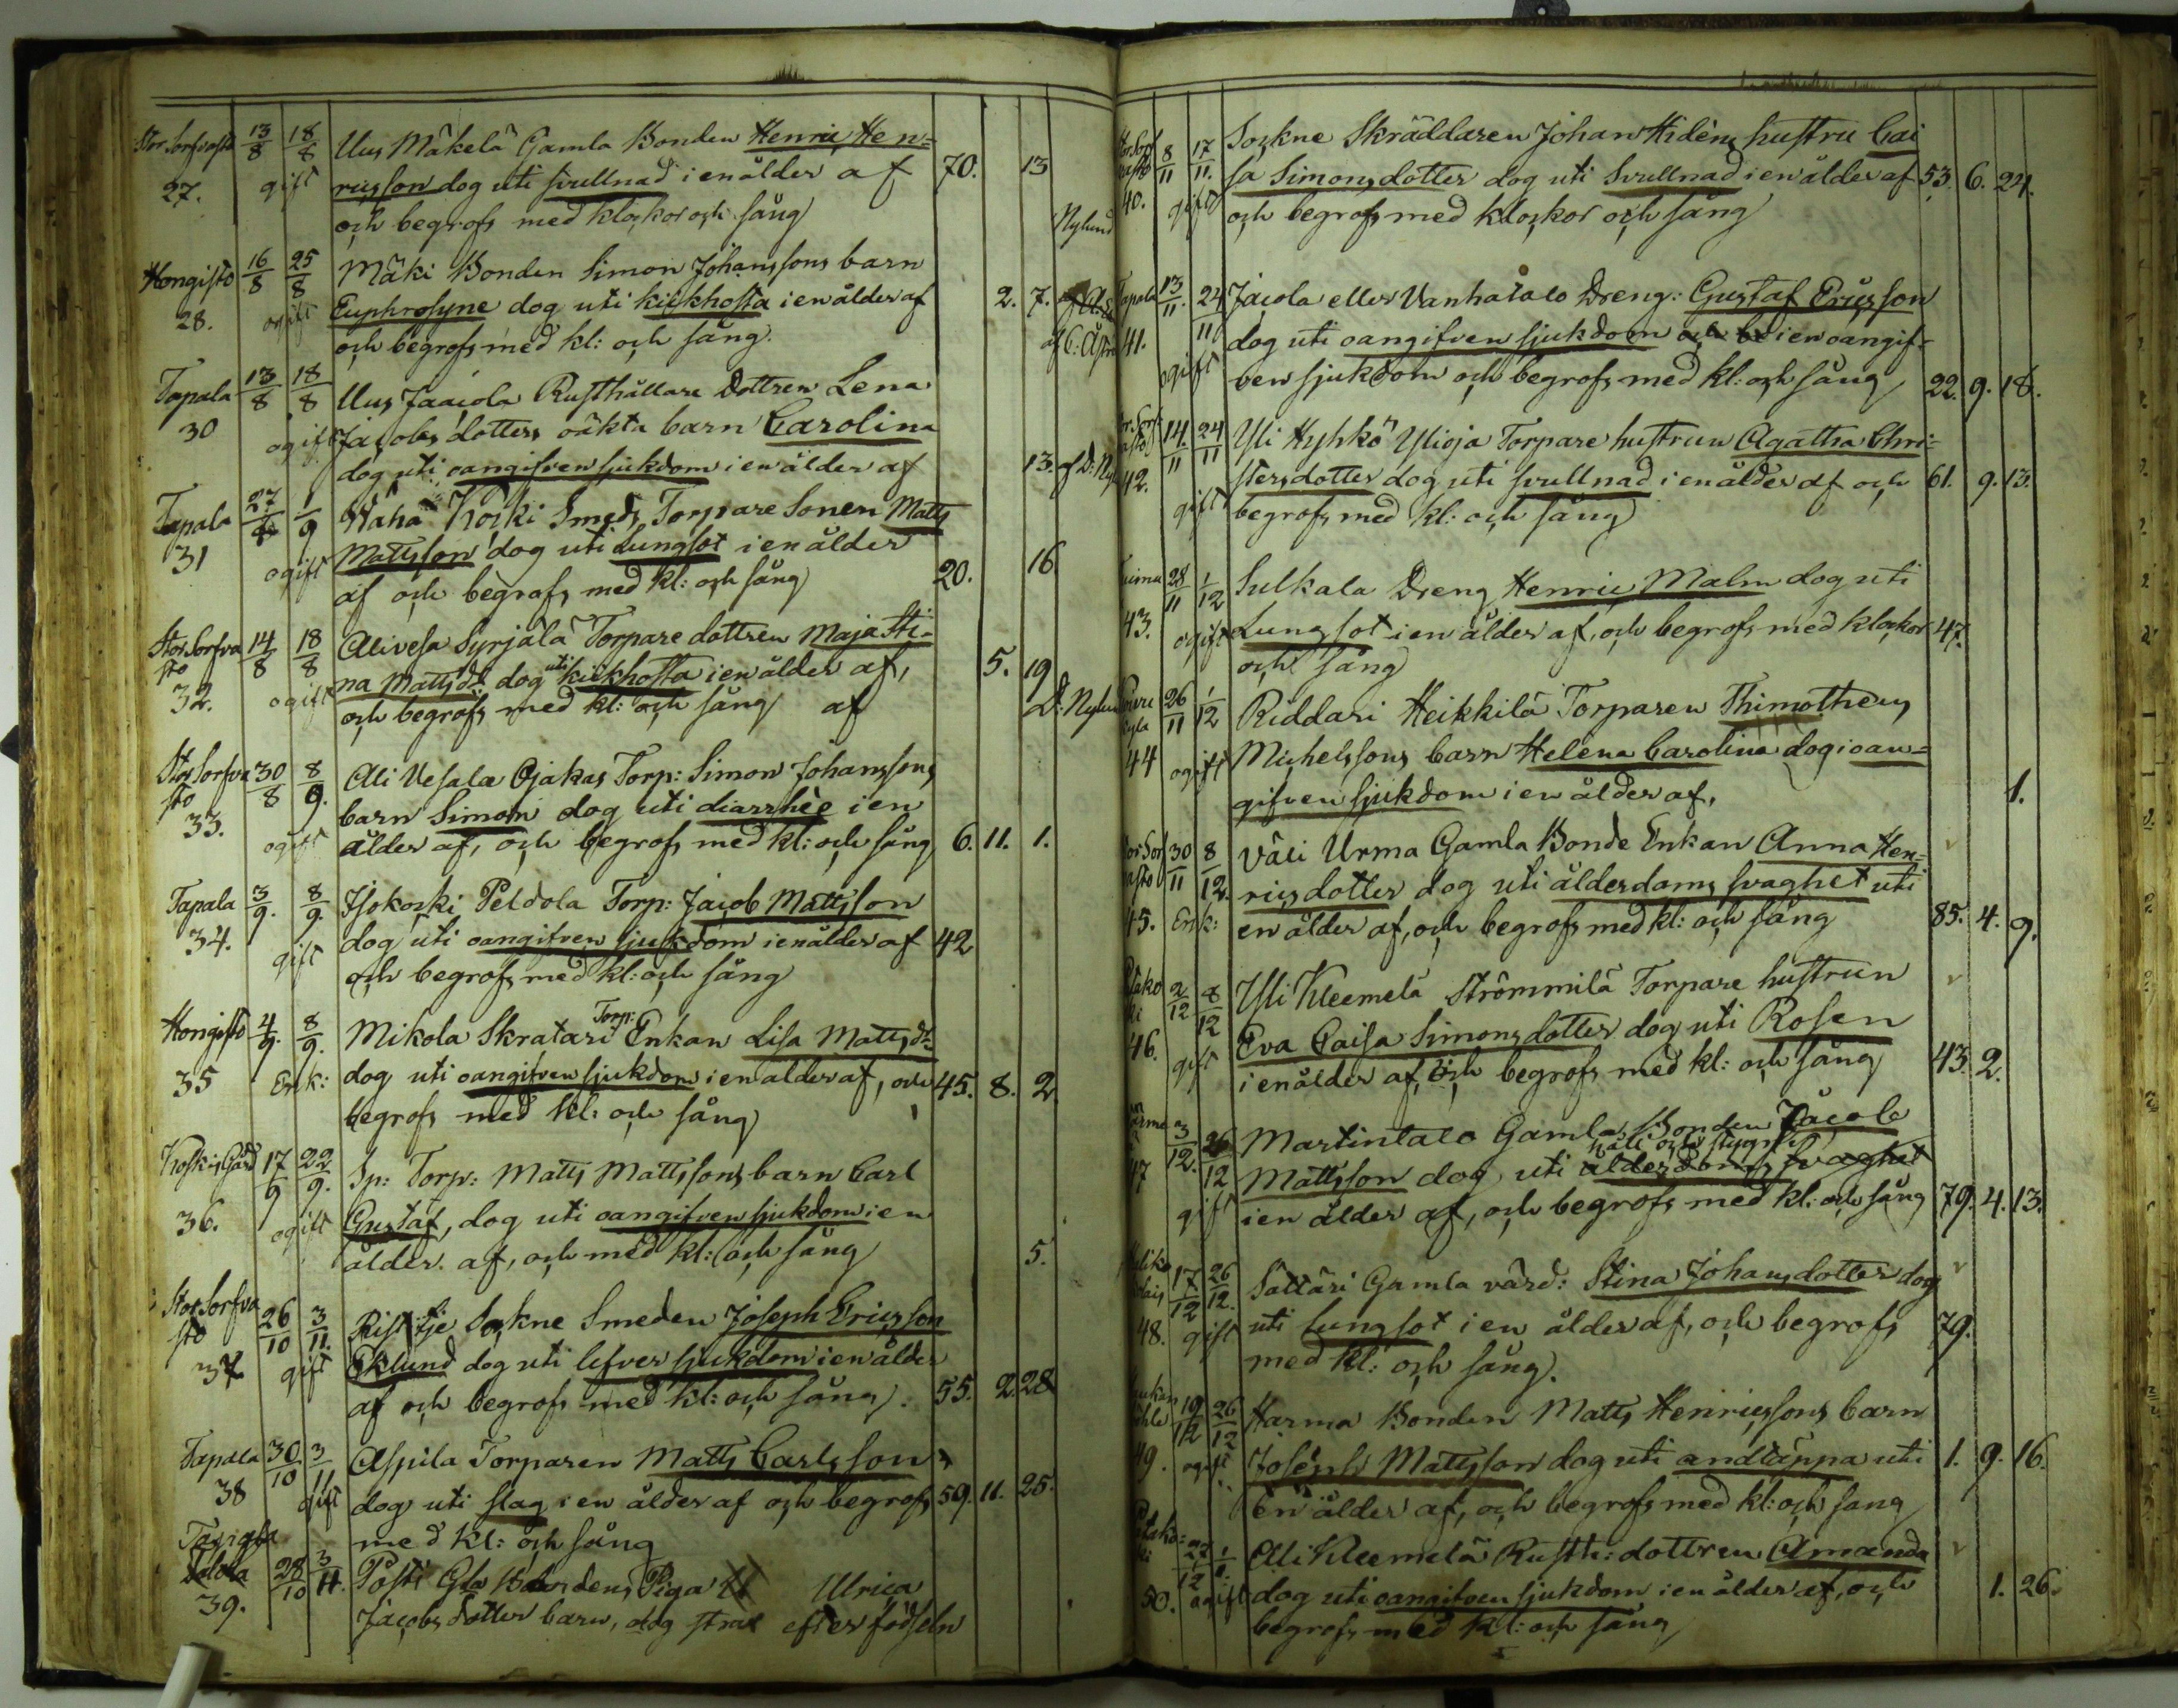 Stor Sorfvasto 13/8 18/8 Uus Mäkelä Gamla Bonden Henric Hen=
27. gift ricsson dog uti svullnad i en ålder af 70. 13
och begrofs med klockor och sång
Nylund
Hongisto 16/8 25/8 Mäki Bonden Simon Johanssons barn
28. ogift Euphrosyne dog uti kikhosta i en ålder af 2. 7.
och begrofs med kl: och sång.
Tapala 13/8 18/8 Uus Jaacola Rusthållare dottren Lena
30 ogift Jacobs dotters oäkta barn Carolina
dog uti oangifven sjukdom i en ålder af 13. af D: Ny
Tapala 27/8 1/9 Wähä Koski Smeds Torpare Sonen Matts
31 ogift Mattsson dog uti Lungsot i en ålder
af och begrafs med kl: och sång 20. 16
Stor Sorfva 14/8 18/8 Alivesa Syrjälä Torpare dottren Maja Sti=
sto
32. ogift na Mattsdr dog uti kikhosta i en ålder af, 5. 19
och begrofs med kl: och sång af D: Nylund
Stor Sorfva 30/8 8/9. Ali Vesala Ojakas Torp: Simon Johanssons
sto
33. ogift barn Simon dog uti diarrhèe i en
ålder af, och begrofs med kl: och sång 6. 11. 1.
Tapala 3/9. 8/9. Isokoski Peldola Torp: Jacob Mattsson
34. gift dog uti oangifven sjukdom i en ålder af 42
och begrofs med kl: och sång
Hongisto 4/9. 8/9. Mikola Skratari Torp: Enkan Lisa Mattsdr
35 Enk: dog uti oangifven sjukdom i en ålder af, och 45. 8. 2.
begrofs med kl: och sång
Koskis Gård 17/9 22/9. Sp: Torp: Matts Mattssons barn Carl
36. ogift Gustaf, dog uti oangifven sjukdom i en
ålder. af, och med kl: och sång 5.
Stor Sorfva 26/10 3/11. Ristitje Sockne Smeden Joseph Ericsson
sto
37 gift Eklund dog uti lefver sjukdom i en ålder
af och begrofs med kl: och sång. 55. 2. 28
Tapala 30/10 3/11 Aspila Torparen Matts Carlsson
38 gift dog uti slag i en ålder af och begrofs 59. 11. 25.
med kl: och sång
28/10 3/11. Posti Gla Bondens Piga Ulrica
39. Jacobs dotter barn, dog strax efter födseln
8/11 17/11. Sockne Skräddaren Johan Hidèns hustru Cai
40. gift sa Simonsdotter dog uti Svullnad i en ålder af 53. 6. 24.
och begrofs med klockor och sång
Tapala 13/11. 24/11 Jacola eller Vanhatalo Dreng: Gustaf Ericsson
41. ogift dog uti oangifven sjukdom och be i en oangif=
ven sjukdom och begrofs med kl: och sång 22. 9. 18.
14/11 24/11 Yli Hyhkö Ylioja Torpare hustrun Agatha Chri=
42. gift stersdotter dog uti svullnad i en ålder af och 61. 9. 13.
begrofs med kl: och sång
28/11 1/12 Sulkala Dreng Henric Malm dog uti
43. ogift Lungsot i en ålder af, och begrofs med klockor 47.
och sång
26/11 1/12 Riddari Heikkilä Torparen Thimotheus
44 ogift Michelssons barn Helena Carolina dog i oan=
gifven sjukdom i en ålder af, 1.
30/11 8/12. Väli Urma Gamla Bonde Enkan Anna Hen=
ricsdotter dog uti ålderdoms svaghet uti
45. Enk: en ålder af, och begrofs med kl: och sång 85. 4. 9.
2/12 8/12 Yli Kleemelä Strömmilä Torpare hustrun
46. gift Eva Caisa Simonsdotter dog uti Rosen
i en ålder af, och begrofs med kl: och sång 43. 2.
3/12. 26/12 Martintalo Gamla Bonden Jacob
47 gift Mattsson dog uti ålderdoms svaghet
i en ålder af, och begrofs med kl: och sång 79. 4. 13.
17/12 26/12. Sattari Gamla värd: Stina Johansdotter dog
48. gift uti Lungsot i en ålder af, och begrofs 79.
med kl: och sång.
19/12 26/12 Harma Bonden Matts Henricssons barn
49. ogift Joseph Mattsson dog uti andtäppa uti 1. 9. 16.
en ålder af, och begrofs med kl: och sång
27/12 1/1. Alli Kleemelä Rusth: dottren Amanda
50. ogift dog uti oangifven sjukdom i en ålder af, och 1. 26.
begrofs med kl: och sång